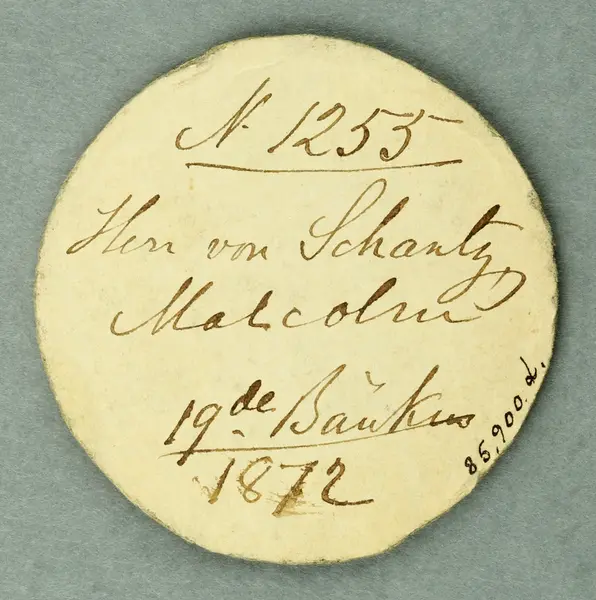 N. 1255
Herr von Schantz,
Malcolm
19de Bänken
1872
85,900.d.